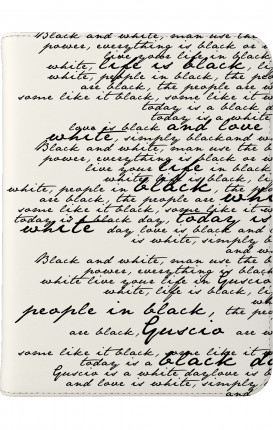 Black and white, man use the b
power, everything is black or w
give your life in black
white, life is black, li
white, people in black, the
are black, the people are w
some like it black, some like it w
today is a black d
today is a white
love is black and love
white, simply black and w
Black and white, man use the b
power, everything is black or w
live your life in black
white, life is black
white, people in black, the p
are black, the people are whi
some like it black, some like it w
today is black day, today is
white day love is black and l
is white, simply
and w
Black and white, man use the b
power, everything is black
white live your life in Guscio
white, life is black, li
people in black, the peo
are black, Guscio are w
some like it black, some like it w
today is a black da
Guscio is a white day love is b
and love is white, simply
and